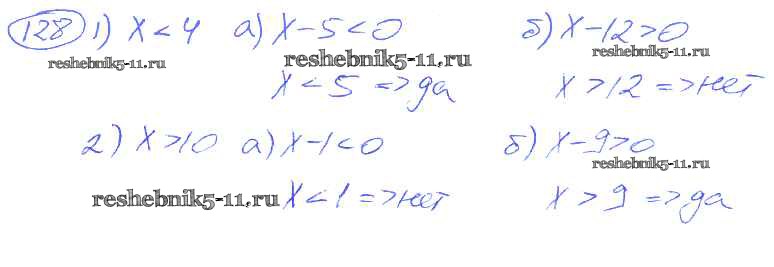 128 1) x < 4 а) x - 5 < 0 б) x - 12 > 0
reshebnik5-11.ru reshebnik5-11.ru reshebnik5-11.ru
x < 5 => да x > 12 => нет
2) x > 10 а) x - 1 < 0 б) x - 9 > 0
reshebnik5-11.ru
reshebnik5-11.ru x < 1 => нет x > 9 => да